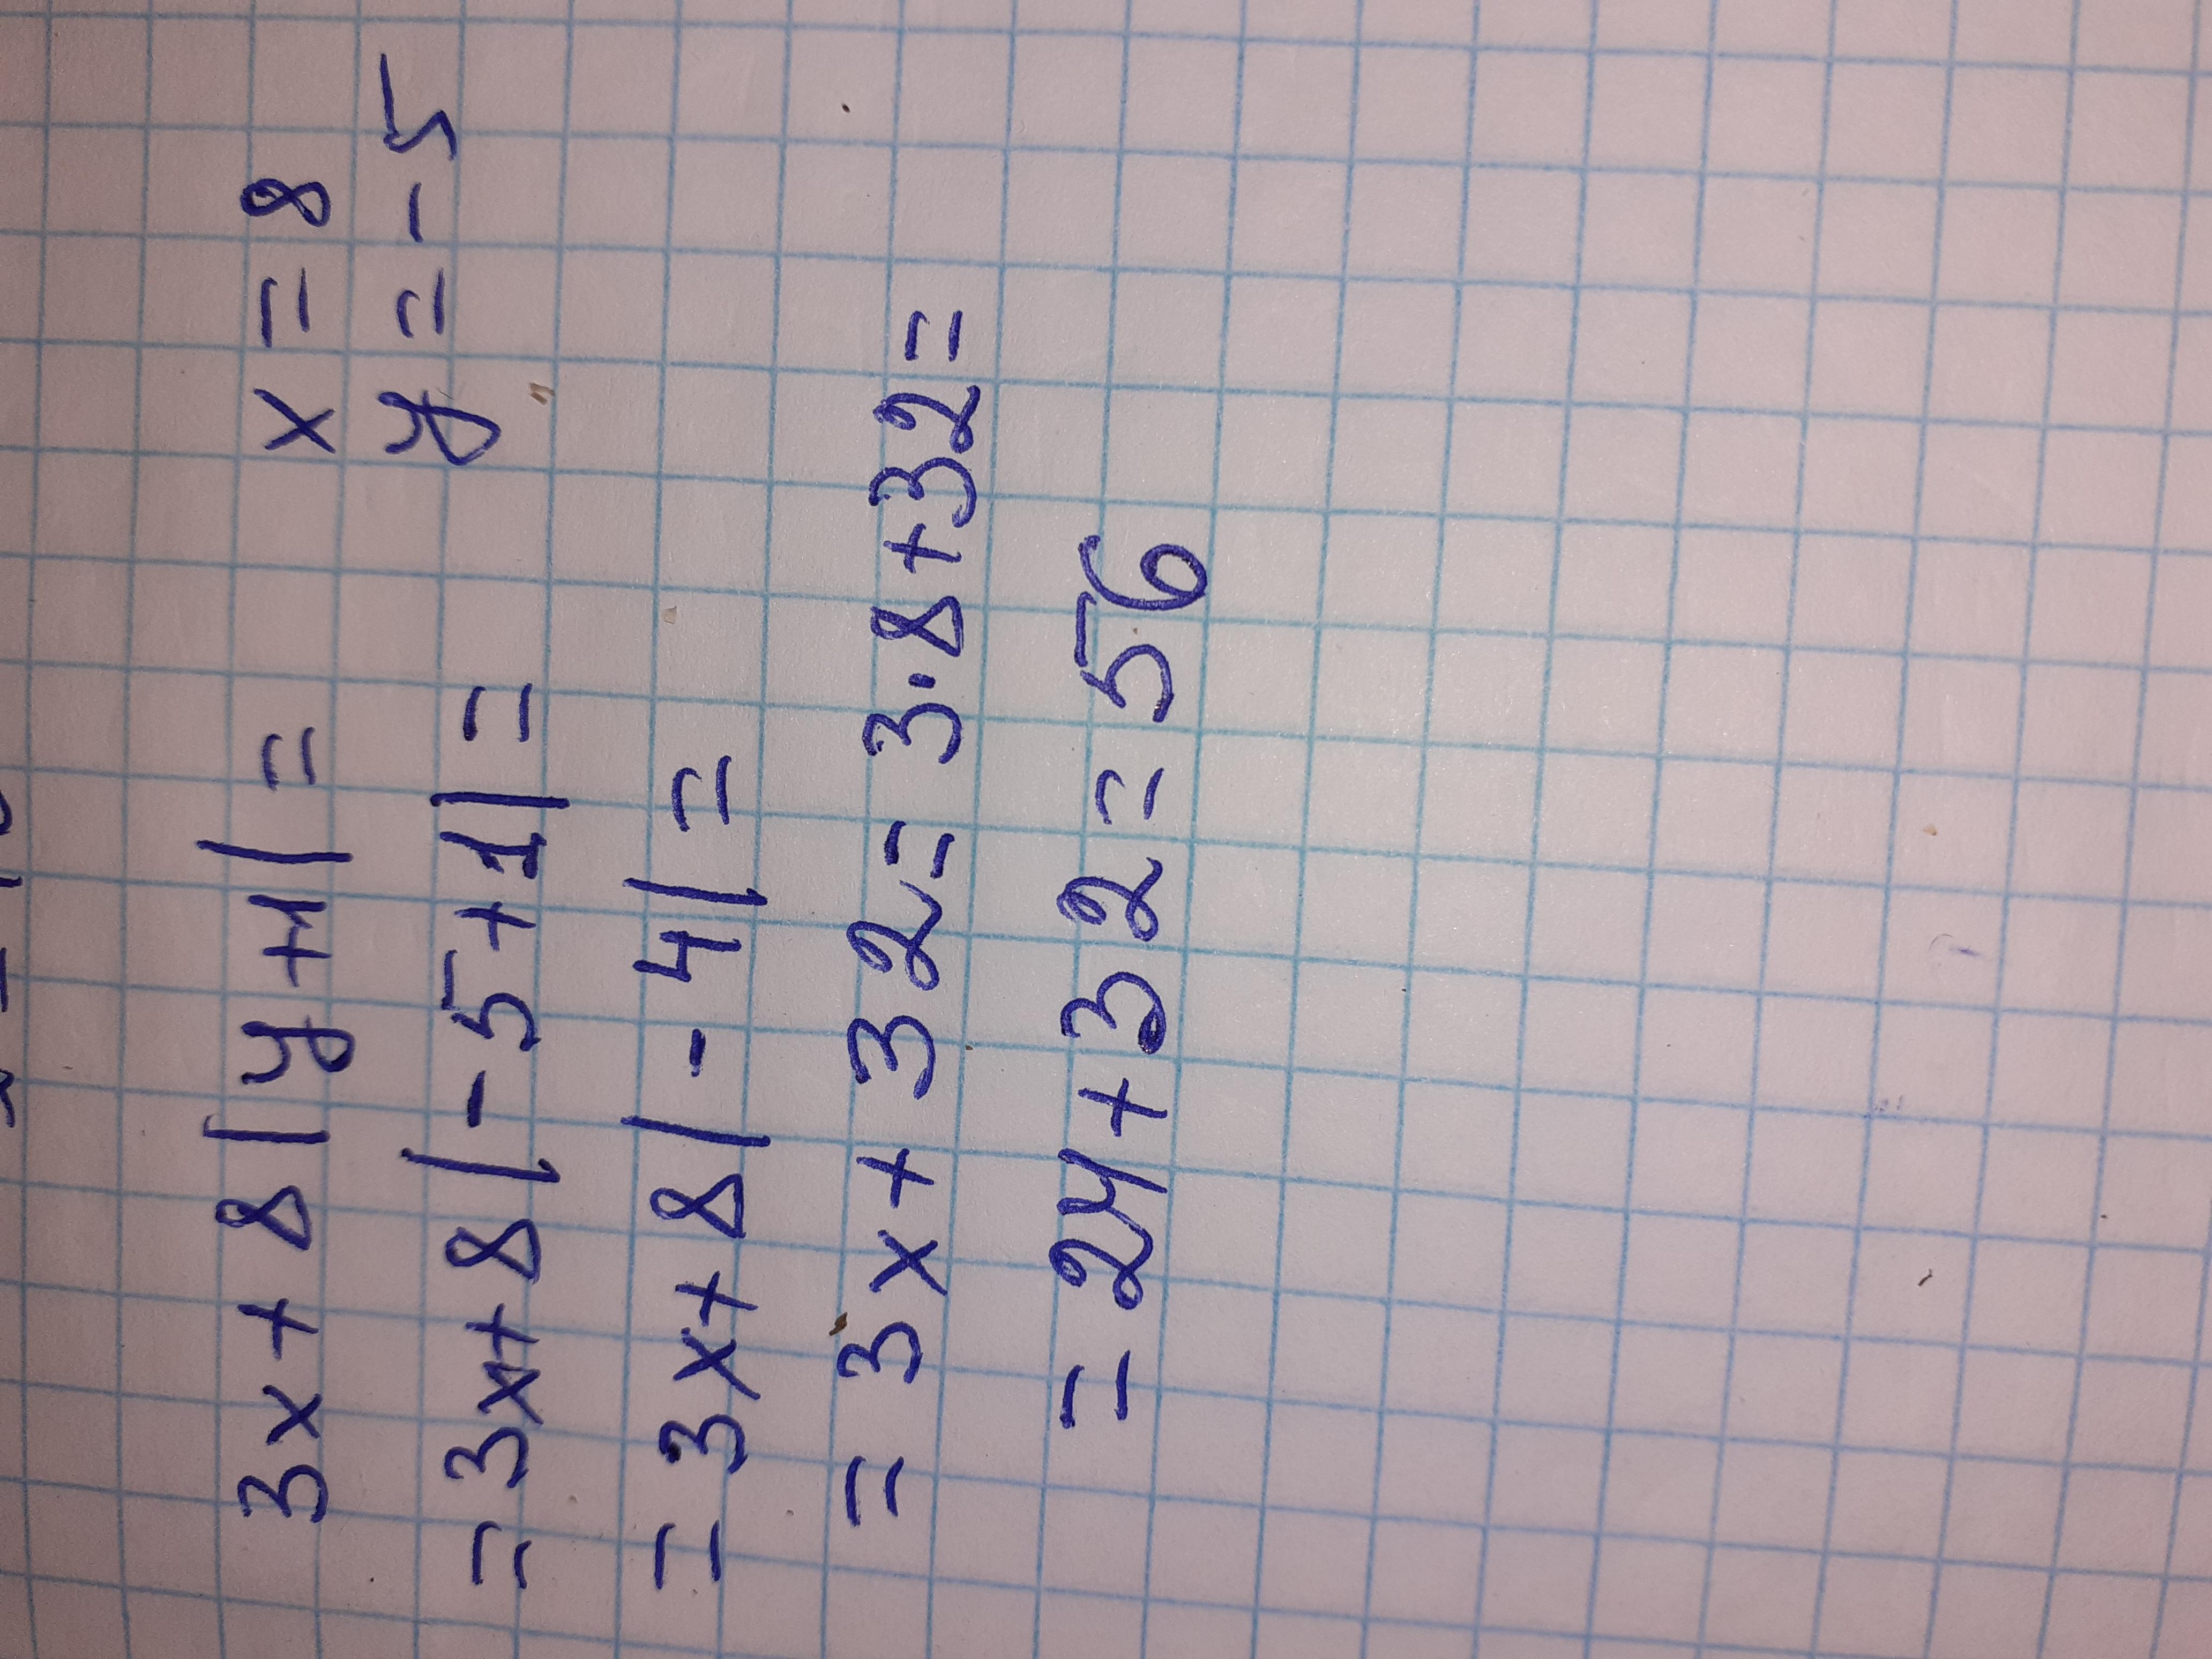 3x + 8|y+1| = x = 8
y = -5
= 3x+8|-5+1| =
= 3x+8|-4| =
= 3x+32= 3·8+32=
= 24+32=56